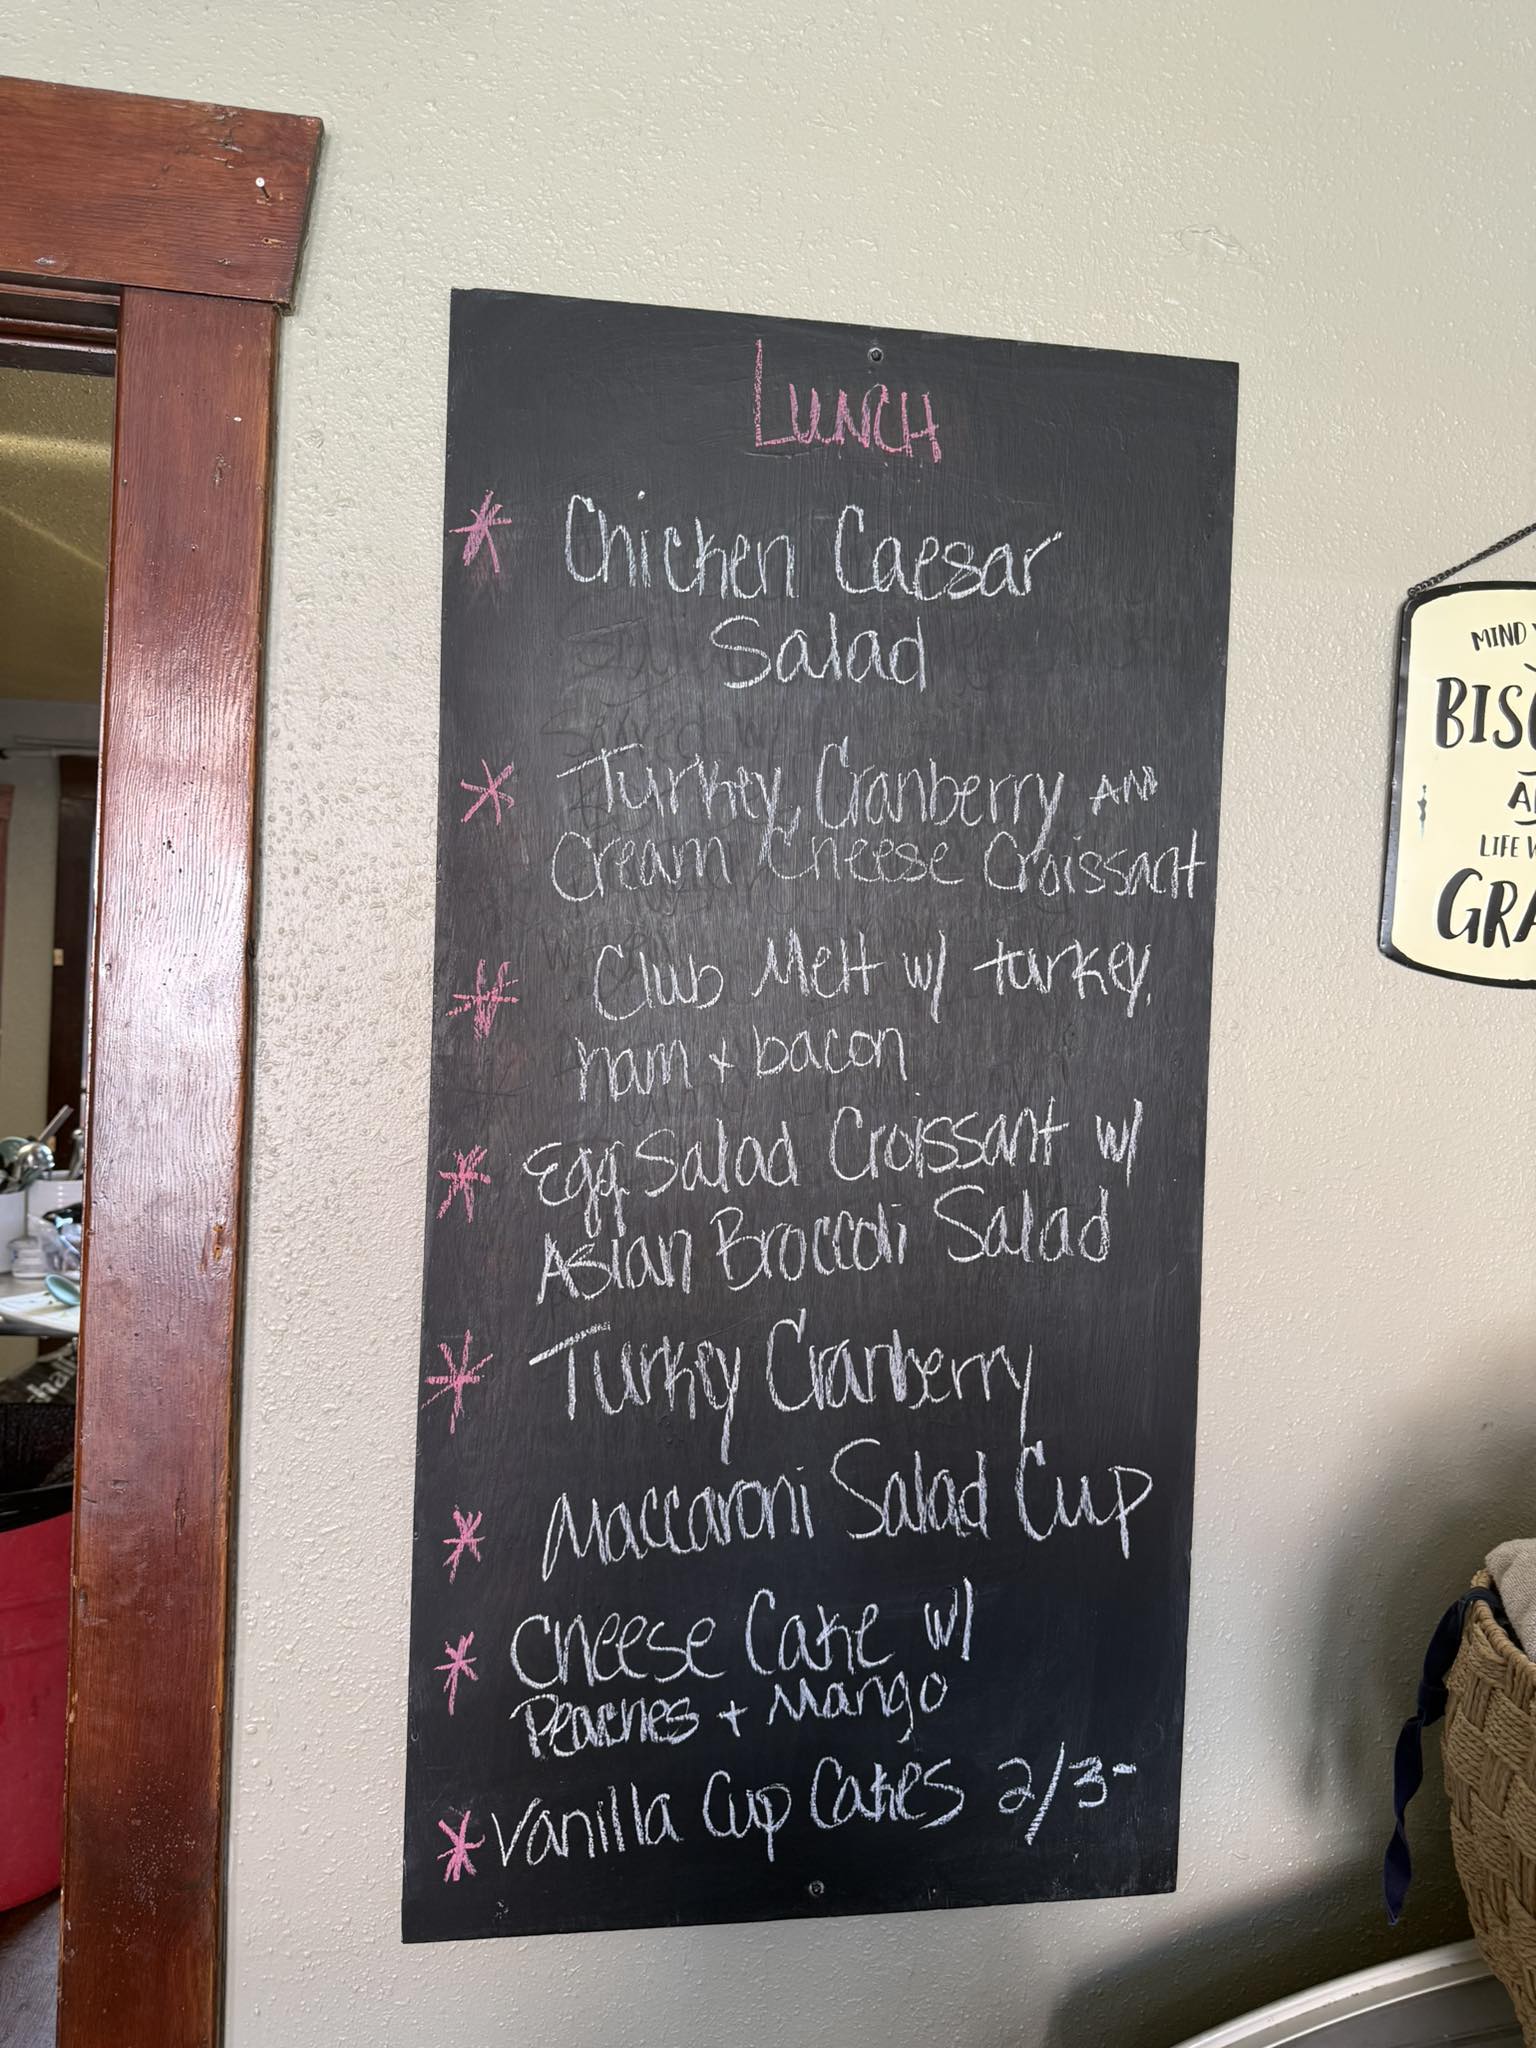 LUNCH
* Chicken Caesar
Salad
* Turkey, Cranberry AND
Cream Cheese Croissant
* Club Melt w/ turkey,
ham + bacon
* Egg Salad Croissant w/
Asian Broccoli Salad
* Turkey Cranberry
* Maccaroni Salad Cup
* Cheese Cake w/
Peaches + Mango
* Vanilla Cup Cakes 2/3-
MIND
LIFE